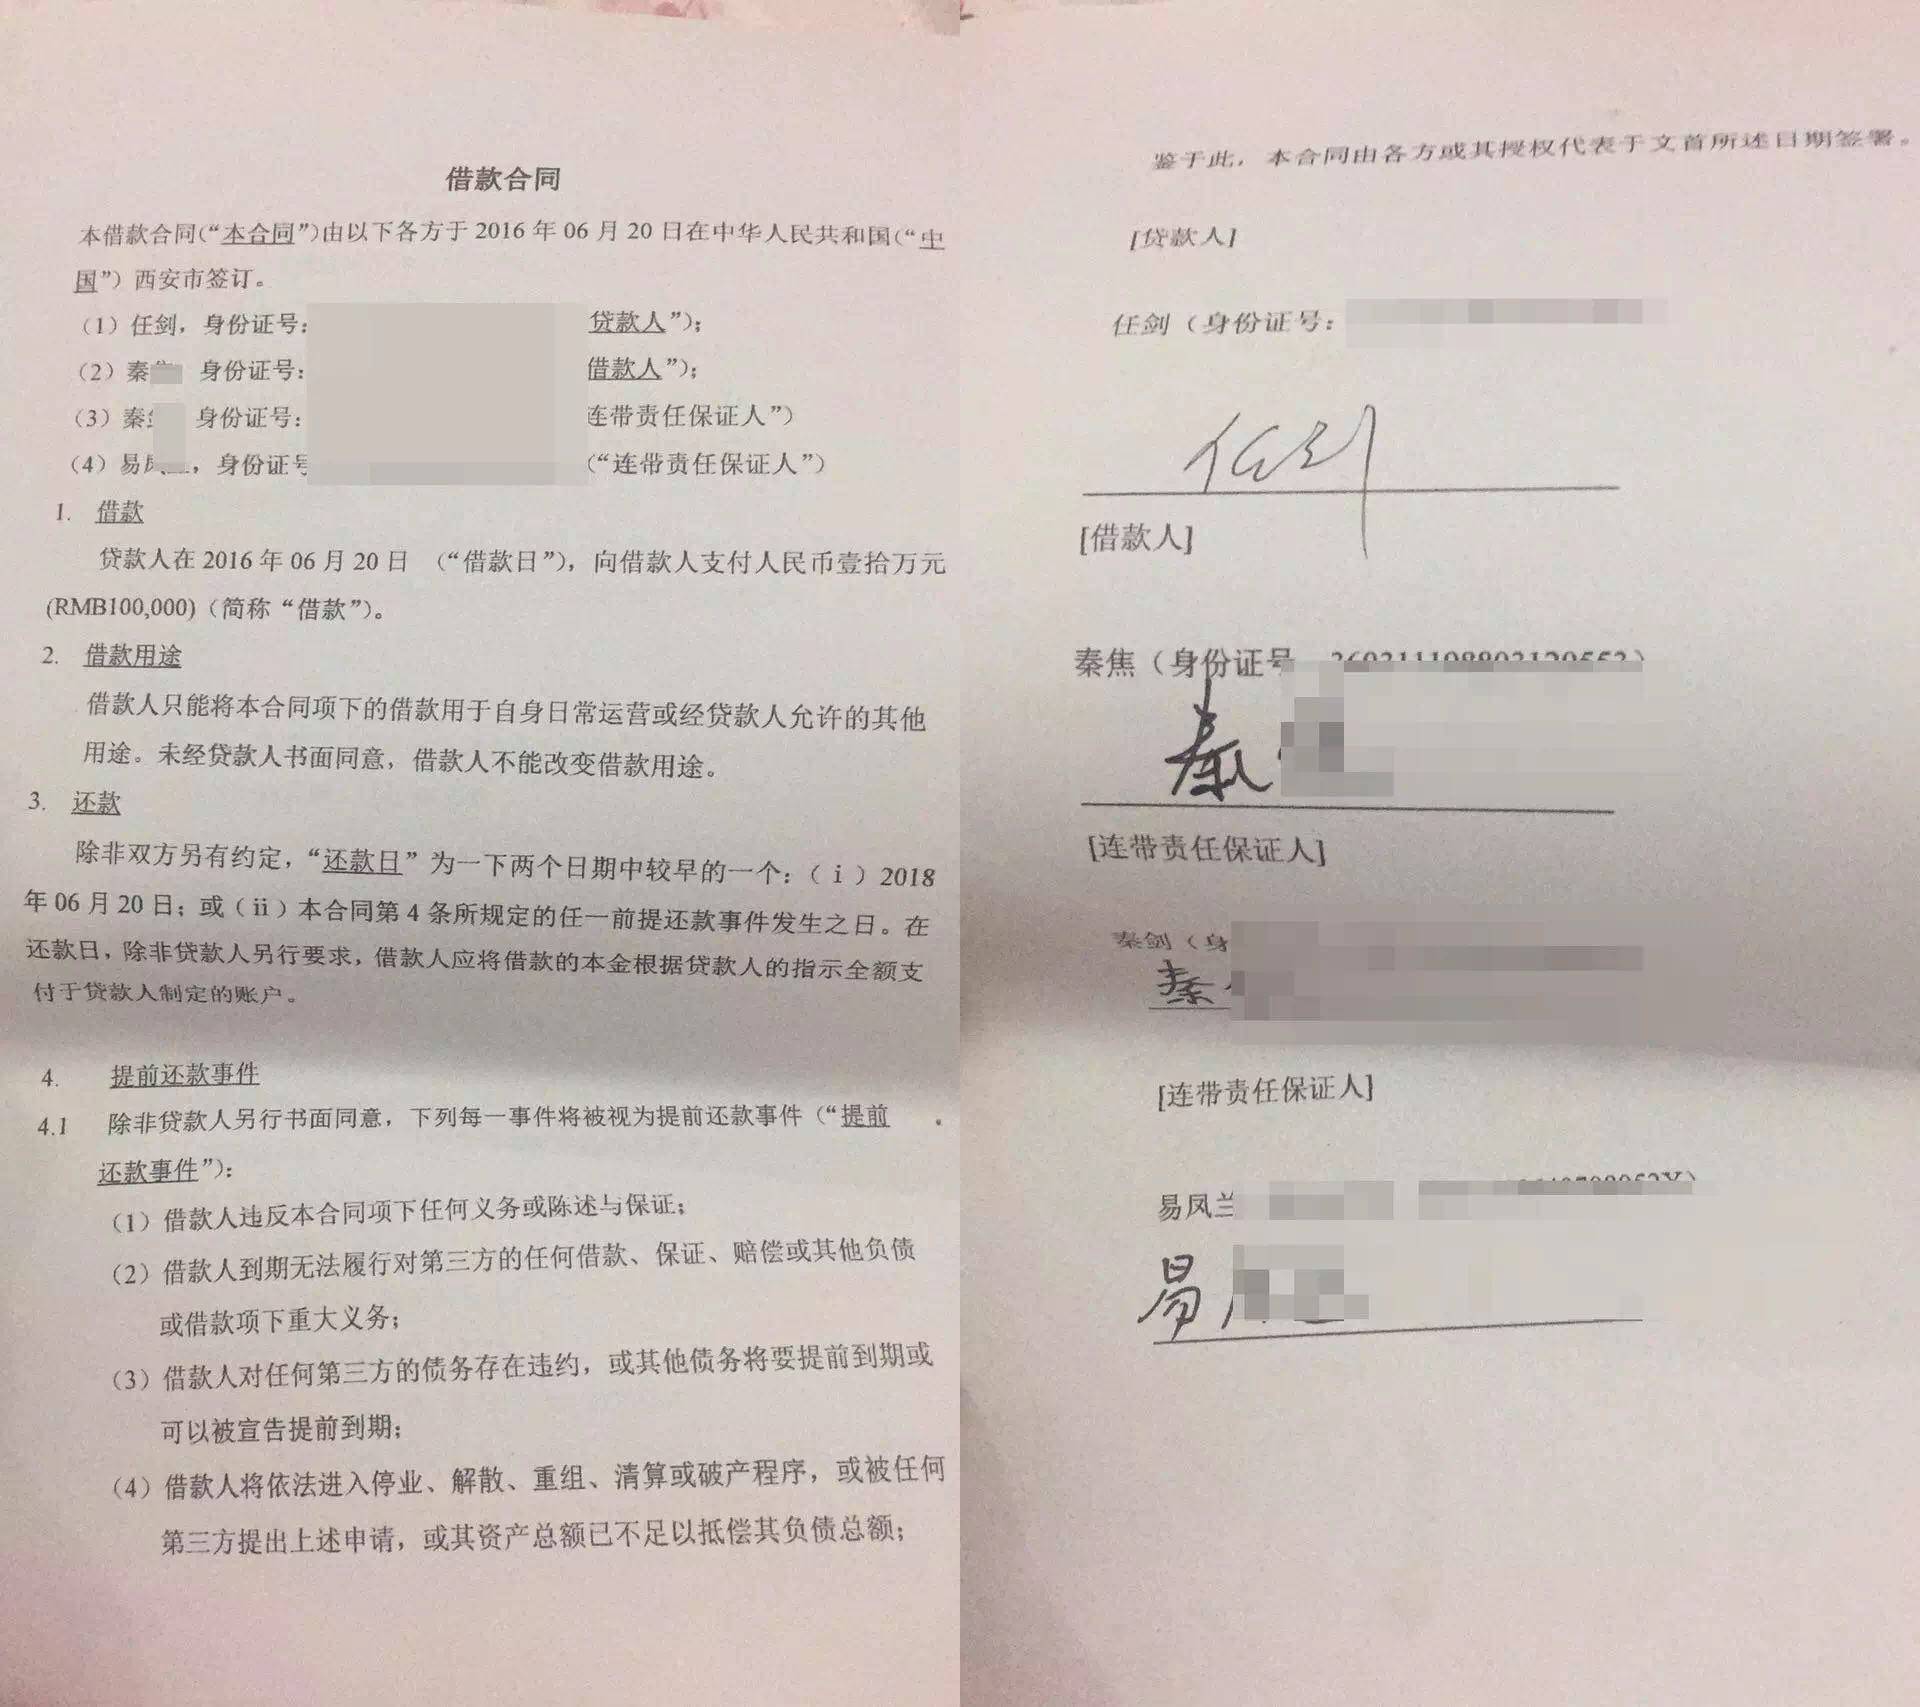 借款合同
本借款合同(“本合同”)由以下各方于 2016 年 06 月 20 日在中华人民共和国(“中
国”）西安市签订。
（1）任剑，身份证号: 贷款人”）;
（2）秦 身份证号: 借款人”）;
（3）秦 身份证号: 连带责任保证人”）
（4）易凤 ，身份证号 (“连带责任保证人”）
1. 借款
贷款人在 2016 年 06 月 20 日 （“借款日”），向借款人支付人民币壹拾万元
(RMB100,000)（简称“借款”）。
2. 借款用途
借款人只能将本合同项下的借款用于自身日常运营或经贷款人允许的其他
用途。未经贷款人书面同意，借款人不能改变借款用途。
3. 还款
除非双方另有约定，“还款日”为一下两个日期中较早的一个:（ i ）2018
年 06 月 20 日；或（ii）本合同第 4 条所规定的任一前提还款事件发生之日。在
还款日，除非贷款人另行要求，借款人应将借款的本金根据贷款人的指示全额支
付于贷款人制定的账户。
4. 提前还款事件
4.1 除非贷款人另行书面同意，下列每一事件将被视为提前还款事件（“提前
还款事件”）:
（1）借款人违反本合同项下任何义务或陈述与保证;
（2）借款人到期无法履行对第三方的任何借款、保证、赔偿或其他负债
或借款项下重大义务;
（3）借款人对任何第三方的债务存在违约，或其他债务将要提前到期或
可以被宣告提前到期;
（4）借款人将依法进入停业、解散、重组、清算或破产程序，或被任何
第三方提出上述申请，或其资产总额已不足以抵偿其负债总额;
鉴于此，本合同由各方或其授权代表于文首所述日期签署。
[贷款人]
任剑（身份证号:
任剑
[借款人]
秦焦（身份证号
秦
[连带责任保证人]
秦剑（身
秦
[连带责任保证人]
易凤兰
易